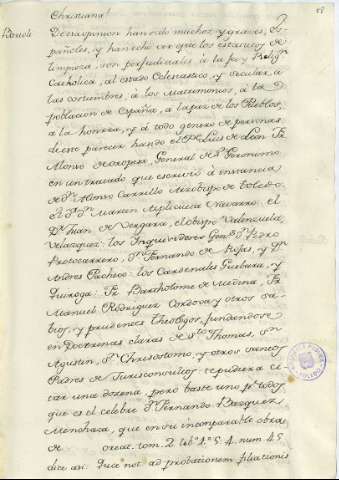 Christiana?
De esta opinion han sido muchos, y graves, Es-
pañoles, y han echo ver que los estatutos de
limpieza, son perjudiciales à la fee, y Relig.n
Catholica, al estado Eclesiastico, y secular, à
las costumbres, à los Matrimonios, à la
poblacion de España, à la paz de los Pueblos,
à la honrra, y à todo genero de personas.
de este parecer han sido el P.e Luis de Leon Fr.
Alonso de Oropesa, General de S.n Geronimo
en un tratado que escrivió à instancia
de D.n Alonso Carrillo Arzobispo de Toledo.
el D.r D.n Martin Azpilcueta Navarro. el
D.r Juan de Vergara, el obispo Valenzuela,
Velazquez: los Inquisidores Gen.s D.n Pedro
Portocarrero, D.n Fernando de Rojas, y D.n
Andres Pacheco: los Cardenales Guebara, y
Quiroga: Fr. Bartholome de Medina, Fr.
Manuel Rodriguez Cordova y otros sa-
bios, y prudentes Theologos, fundandose
en Doctrinas claras de S.to Thomas, S.n
Agustin, S.n Chrisostomo, y otros santos
Padres de Jurisconsultos se pudiera ci-
tar una dozena, pero baste uno p.r todos
que es el celebre D.n Fernando Bazquez
Menchaca, que en su incomparable obra
de creat. tom. 2. lib. 1.o § 4. num. 45
dice asi: Quæ not. ad probationem filiationis